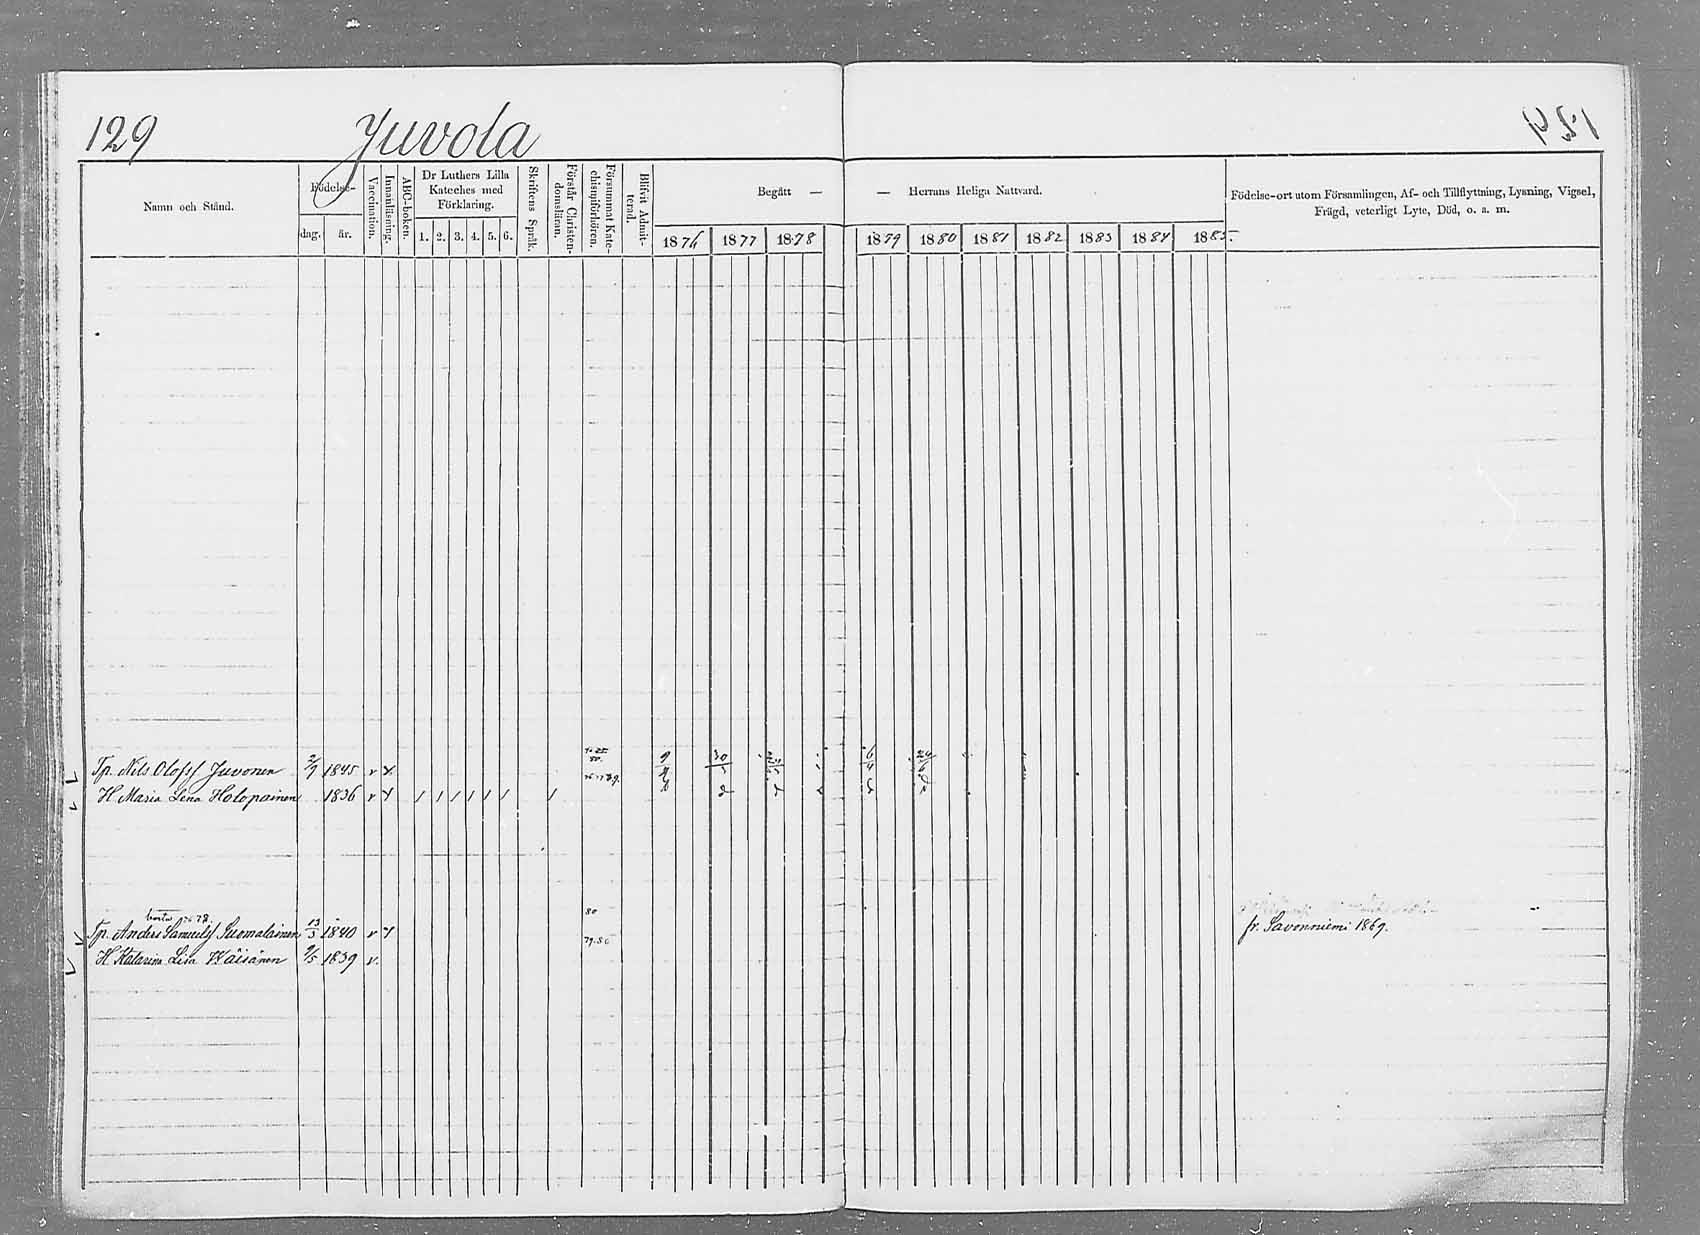 129 Juvola
Namn och Stånd.
Födelse-
dag. år.
Vaccination.
Innanläsning.
ABC-boken.
Dr Luthers Lilla
Kateches med
Förklaring.
1. 2. 3. 4. 5. 6.
Skriftens Språk.
Förstår Christen-
domsläran.
Försummat Kate-
chismiförhören.
Blifvit Admit-
terad.
Begått — — Herrans Heliga Nattvard.
1876 1877 1878 1879 1880 1881 1882 1883 1884 1885.
Födelse-ort utom Församlingen, Af- och Tillflyttning, Lysning, Vigsel,
Frägd, veterligt Lyte, Död, o. a. m.
Tp. Nils Olofss Juvonen 2/9 1845 v
H. Maria Lena Holopainen 1836 v
80
borta 78.
Tp. Anders Samuelss Suomalainen 13/3 1840 v fr. Savonniemi 1869.
79.80
H Katarina Lisa Käisänen 9/5 1839 v.